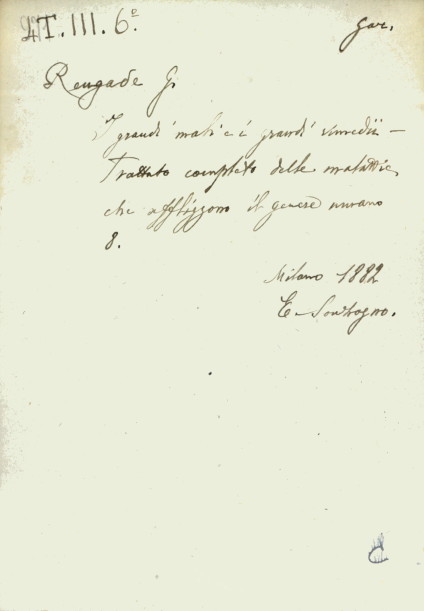 4T.III.6º
gar.
Rengade G.
I grandi mali e i grandi rimedii —
Trattato completo delle malattie
che affliggono il genere umano
8.
Milano 1882
E. Sonzogno.